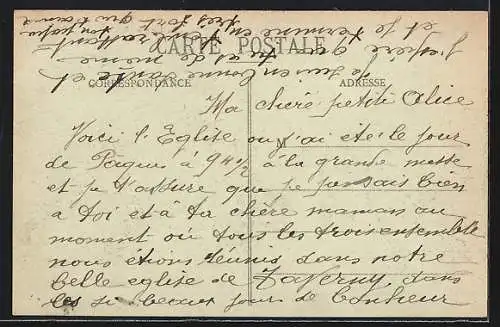 CARTE POSTALE
CORRESPONDANCE
ADRESSE
Ma chère petite Alice
Voici l'Eglise ou j'ai été le jour
de Pâques a 9 h 1/2 à la grande messe
et je t'assure que je pensais bien
a toi et à ta chère maman au
moment où tous les trois ensemble
nous étions réunis dans notre
belle eglise de Taverny, dans
les si beaux jours de bonheur
je suis en bonne santé et
j'espère que toi et de même
et je termine en t'embrassant
très fort ton papa